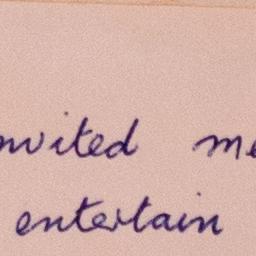 invited me
entertain